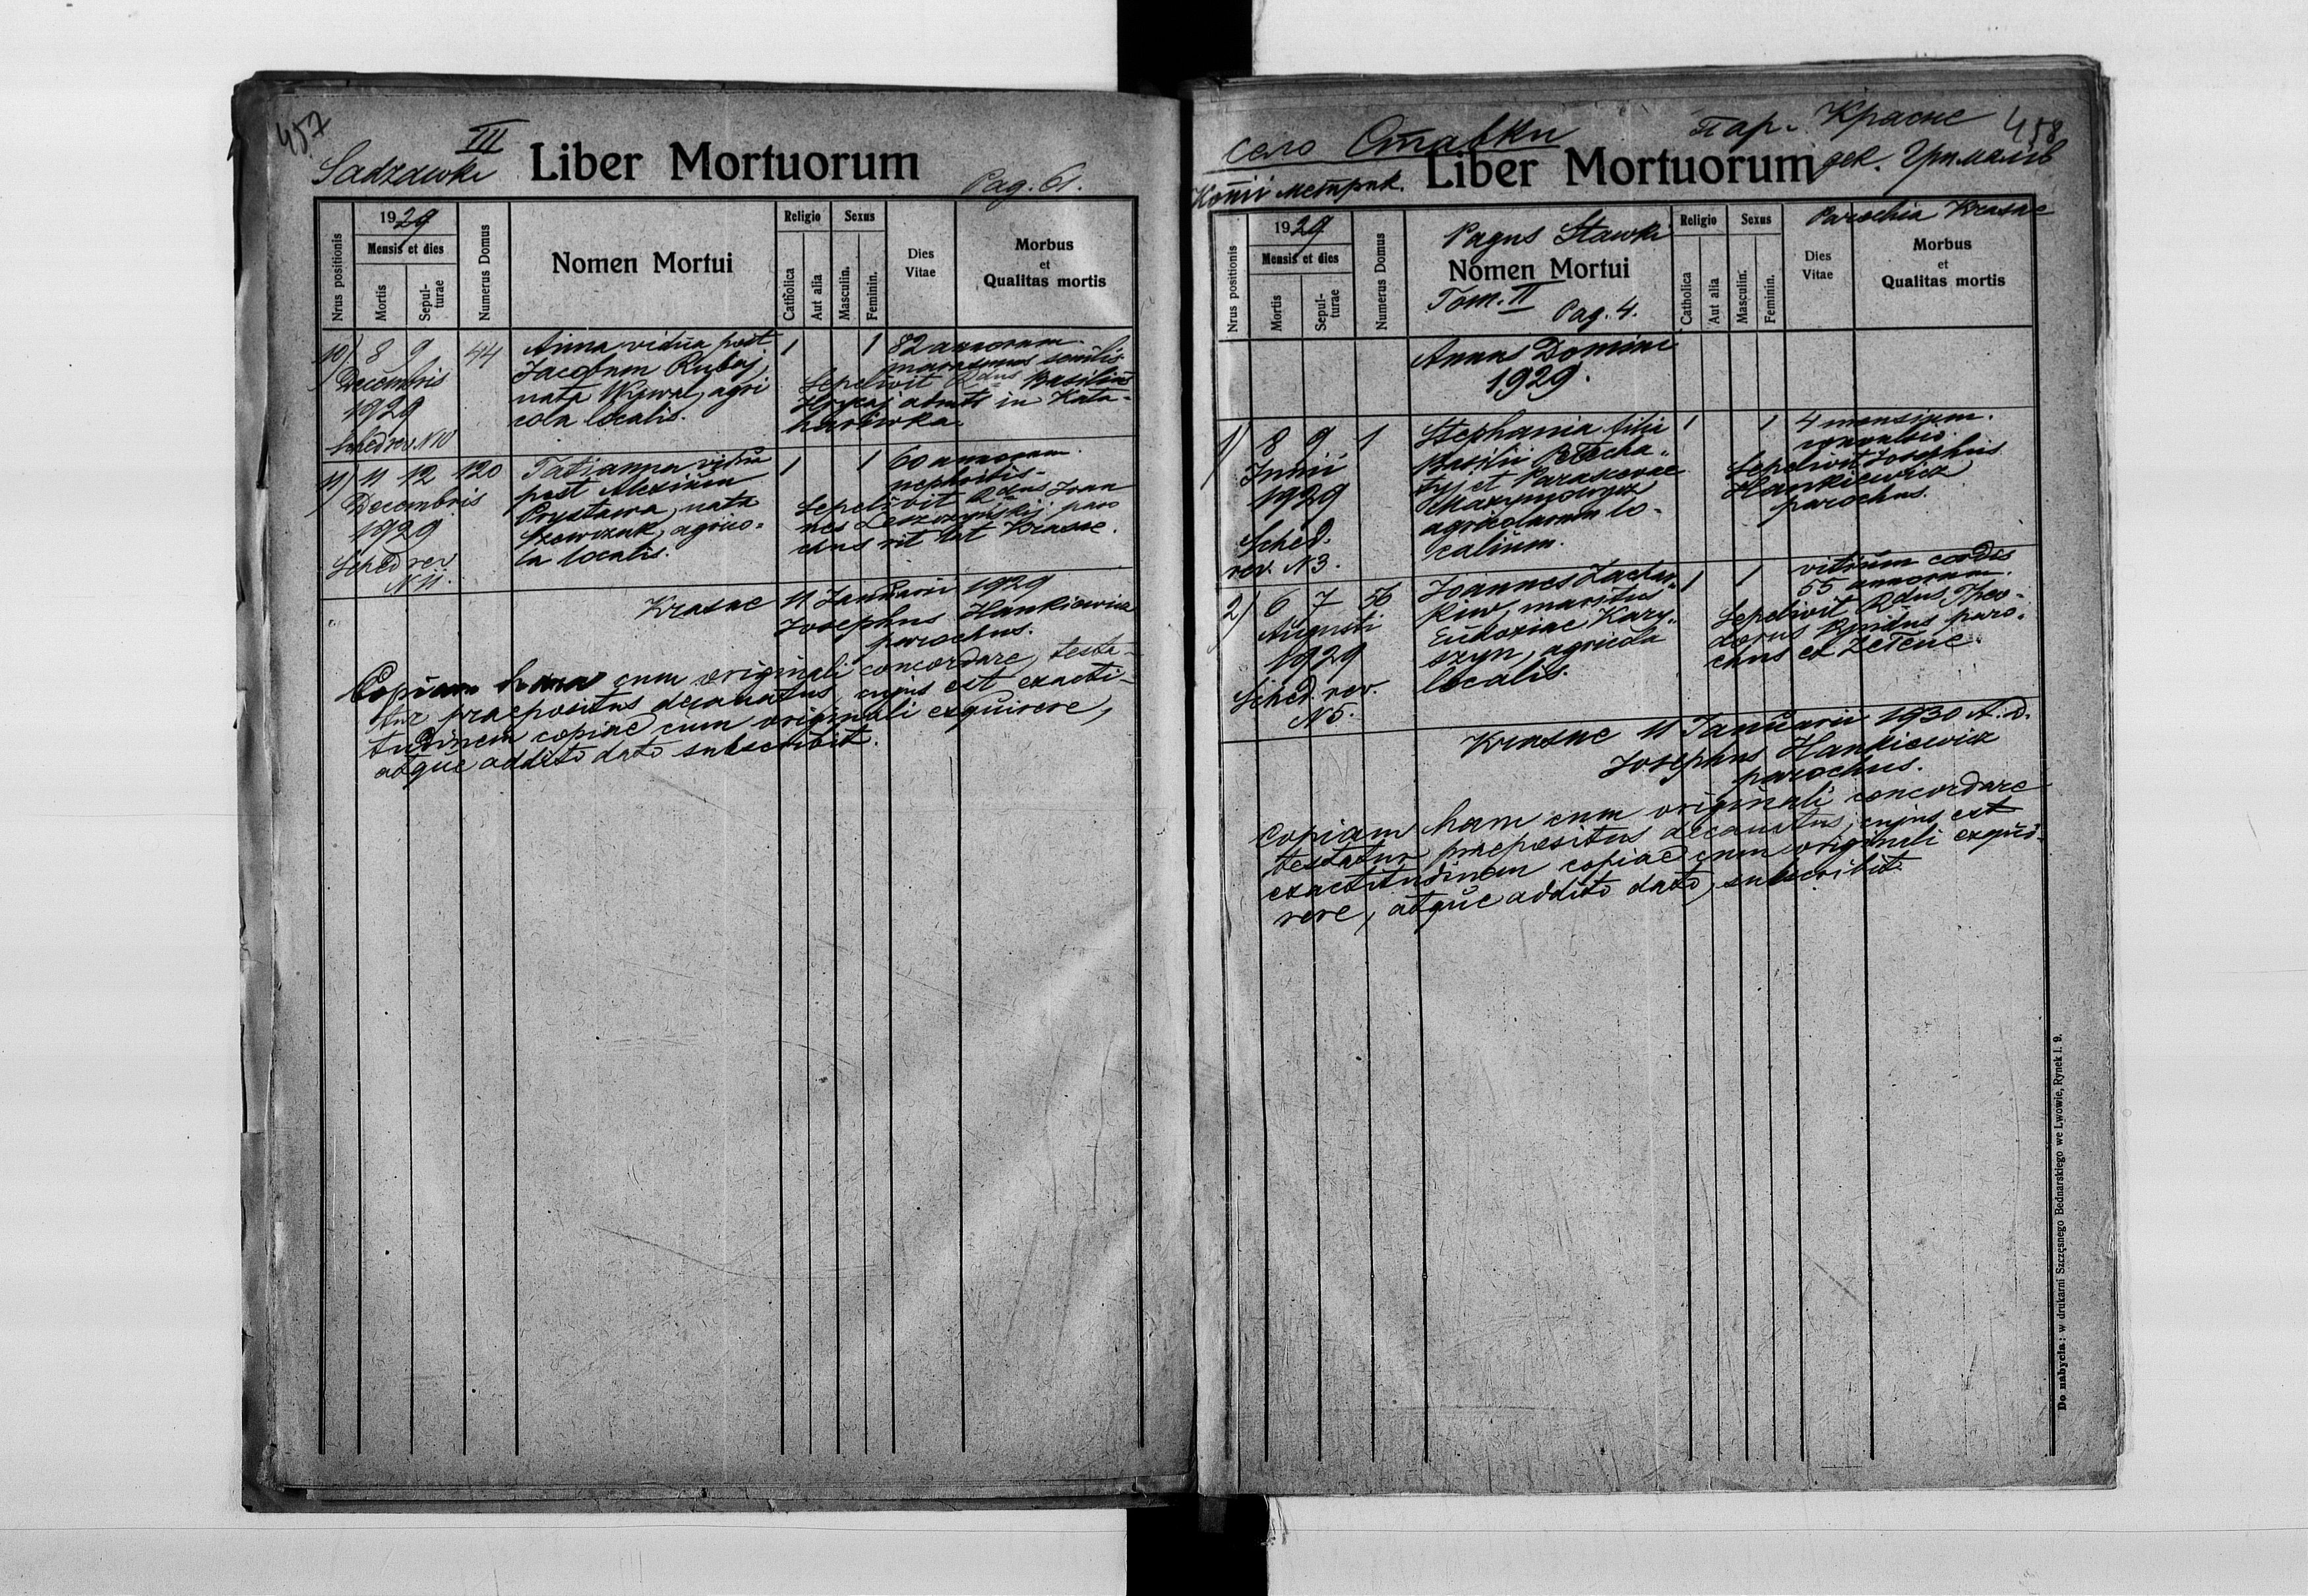 457
III
Sadzawki Liber Mortuorum Pag. 61.
Nrus positionis
1929
Mensis et dies
Mortis
Sepul-
turae
Numerus Domus
Nomen Mortui
Religio
Catholica
Aut alia
Sexus
Masculin.
Feminin.
Dies
Vitae
Morbus
et
Qualitas mortis
10) 8 9
Decembris
1929
Sched rev. N10
44
Anna vidua post
Jacobum Rubaj,
nata Wywal, agri
cola localis.
1 1
82 annorum
marasmus senilis
Sepelivit Rdus Basilius
Hrycaj abmts in Kata-
harówka.
11) 11 12
Decembris
1929
Sched rev
N 11.
120
Tatianna vidua
post Alexium
Prystawa, nata
Szewczuk, agrico-
la localis.
1 1
60 annorum.
nephritis-
Sepelivit Rdus Joan
nes Leszczynskij paro
chus rit lat Krasne.
Krasne 11 Januarii 1929
Josephus Hankiewicz
parochus.
Copiam hanc cum originali concordare, testa-
tur praepositus decanatus, cujus est exacti-
tudinem copiae cum originali exquirere,
atque addito dato subscribit.
458
село Ставки Пар. Красне
Копії метрик. Liber Mortuorum дек. Грималів
Nrus positionis
1929
Mensis et dies
Mortis
Sepul-
turae
Numerus Domus
Pagus Stawki
Nomen Mortui
Tom. II Pag. 4.
Religio
Catholica
Aut alia
Sexus
Masculin.
Feminin.
Parochia Krasne
Dies
Vitae
Morbus
et
Qualitas mortis
Annus Domini
1929.
1) 8 9
Junii
1929
Sched.
rev. N 3.
1
Stephania filia
Basilii
et Parascevae
agricolarum lo-
calium.
1 1
4 mensium.
Sepelivit Josephus
Hankiewicz
parochus.
2) 6 7
Augusti
1929
Sched. rev.
N 5.
56
Joannes
maritus
Eudoxiae Kary-
szyn, agricola
localis.
1 1
vitium cordis
55 annorum.
Sepelivit Rdus Theo-
dorus paro-
chus
Krasne 11 Januarii 1930 A.D.
Josephus Hankiewicz
parochus.
Copiam hanc cum originali concordare
testatur praepositus decanatus, cujus est
exactitudinem copiae cum originali exqui-
rere, atque addito dato subscribit.
Do nabycia: w drukarni Szczęsnego Bednarskiego we Lwowie, Rynek l. 9.